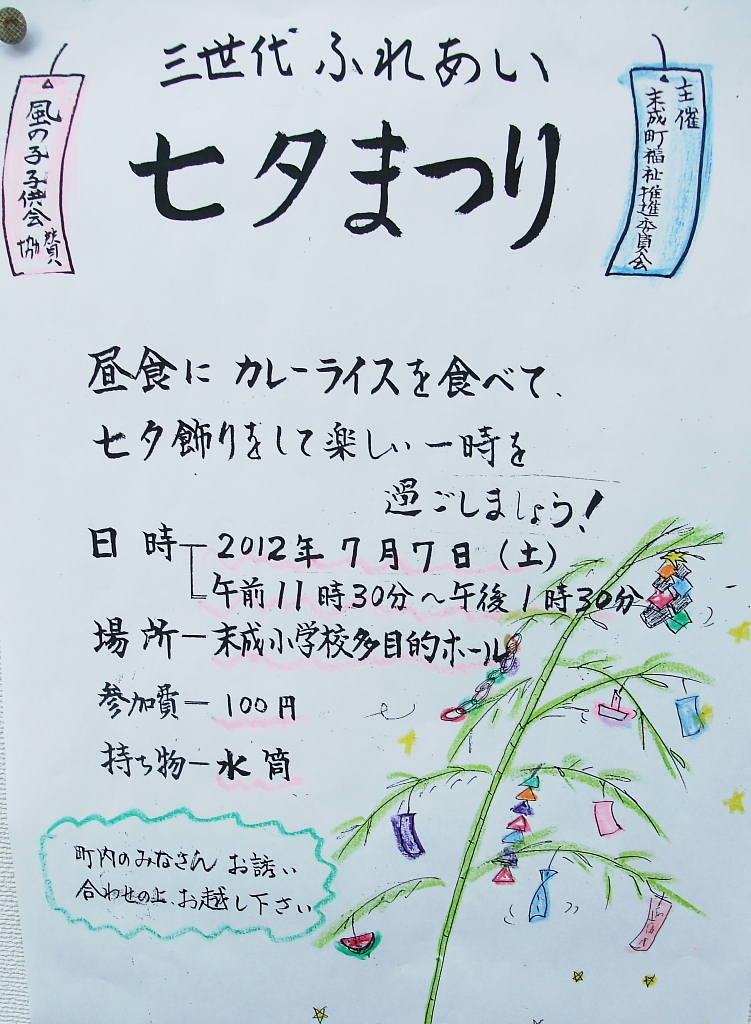 三世代ふれあい
七夕まつり
主催
末成町福祉推進委員会
風の子子供会
協賛
昼食に カレーライスを食べて、
七夕飾りをして楽しい一時を
過ごしましょう!
日時 2012年7月7日(土)
午前11時30分～午後1時30分
場所ー末成小学校多目的ホール
参加費ー100円
持ち物ー水筒
町内のみなさん お誘い
合わせの上、お越し下さい